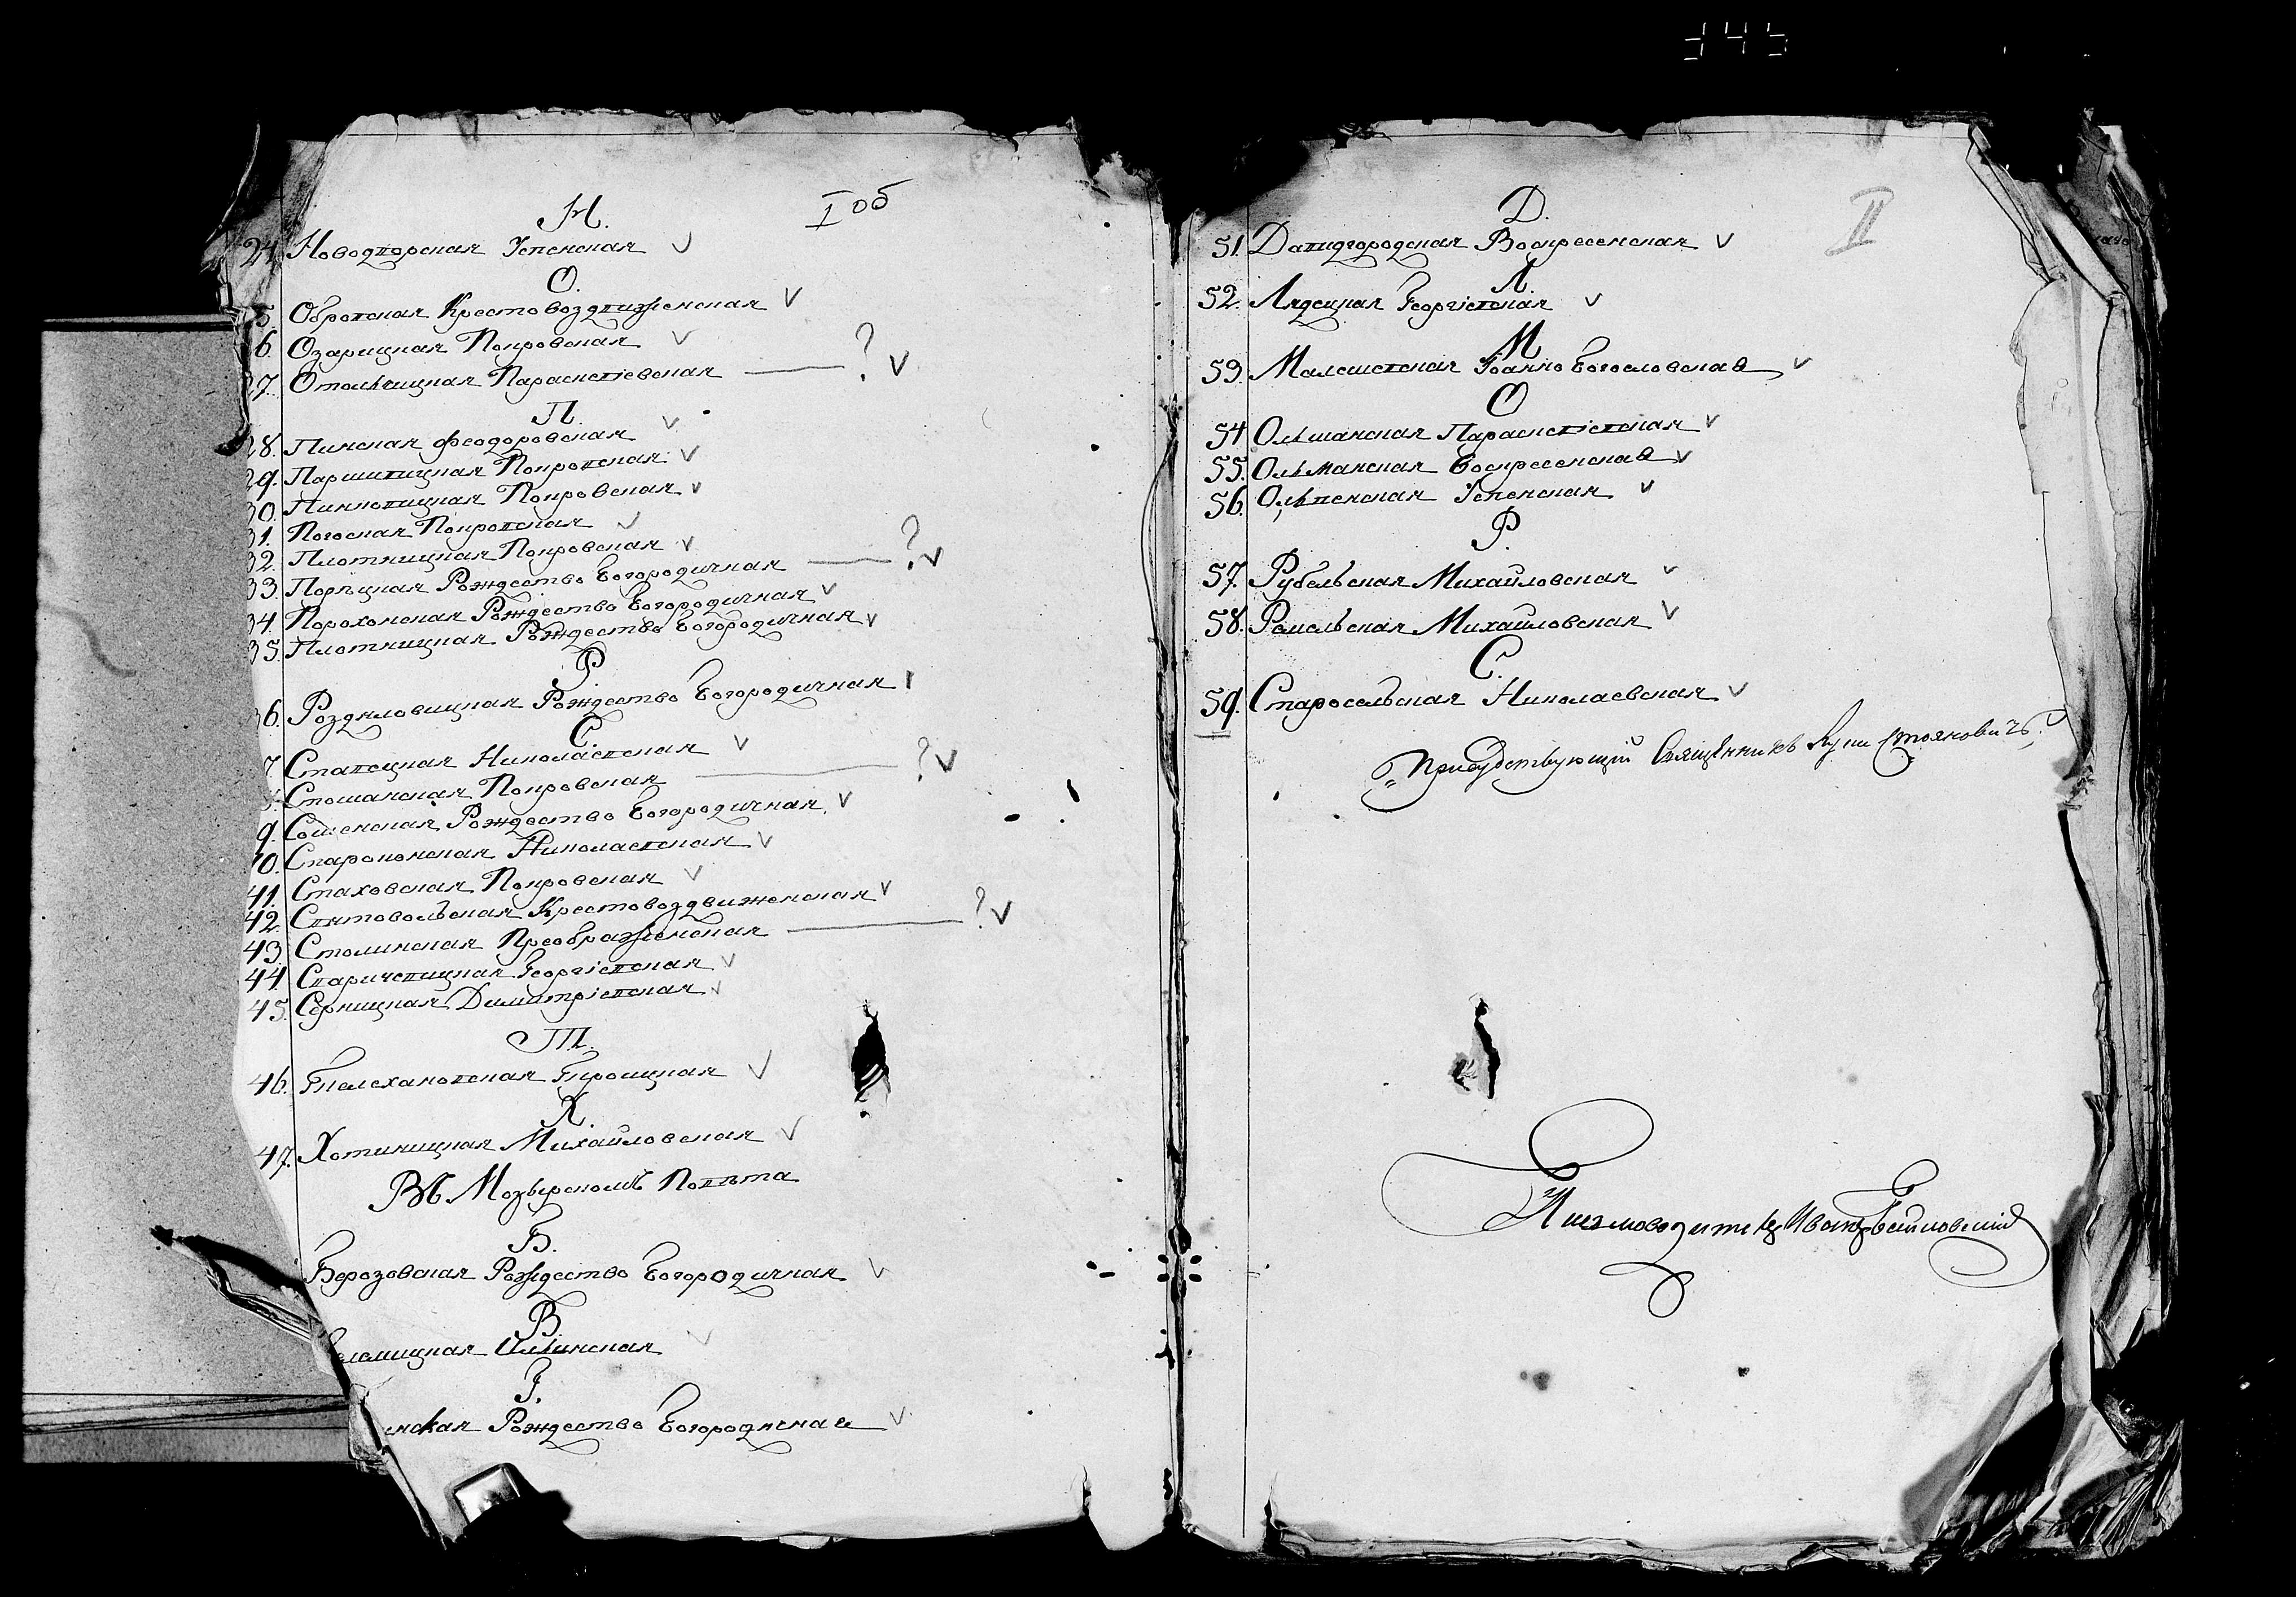 345
I об
Н.
24. Новодворская Успенская V
О.
5. Обровская Крестовоздвиженская V
6. Озарицкая Покровская V
27. Отольчицкая Параскевіевская — ? V
П.
28. Пинская Феодоровская V
29. Паршевицкая Покровская V
30. Пинковицкая Покровская V
31. Погоская Покровская V
32. Плотницкая Покровская V
33. Порѣцкая Рождество Богородичная — ? V
34. Порохонская Рождество Богородичная V
35. Плотницкая Рождество Богородичная V
Р.
36. Роздяловицкая Рождество Богородичная V
С
7. Ставецкая Николаевская V
Стошанская Покровская — ? V
9. Сошенская Рождество Богородичная V
40. Староконская Николаевская V
41. Стаховская Покровская V
42. Святовольская Крестовоздвиженская V
43. Столинская Преображенская — ? V
44. Спаричевицкая Георгіевская V
45. Серницкая Димитріевская V
Т.
46. Телехановская Троицкая V
Х.
47. Хотиницкая Михайловская V
Въ Мозырскомъ Повѣта
Б.
Березовская Рождество Богородичная V
В.
елемицкая Ильинская V
Г.
нская Рождество Богородиская V
II
Д.
51. Давидгородская Воскресенская V
Л.
52. Лядецкая Георгіевская V
М
53. Малешевская Іоанно Богословская V
О
54. Ольшанская Параскевіевская V
55. Ольманская Воскресенская V
56. Ольпенская Успенская V
Р.
57. Рубельская Михайловская V
58. Ремельская Михайловская V
С.
59. Старосельская Николаевская V
Присудствующий Священникъ Стояновичъ
Писмоводитель Иванъ